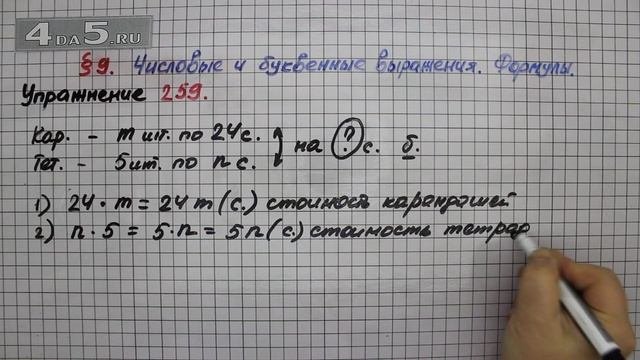 4DA5.RU
§9. Числовые и буквенные выражения. Формулы.
Упражнение 259.
Кар. - m шт. по 24 с. на ? с. б.
Тет. - 5 шт. по n с.
1) 24 · m = 24 m (с.) стоимость карандашей
2) n · 5 = 5 · n = 5 n (с.) стоимость тетрад